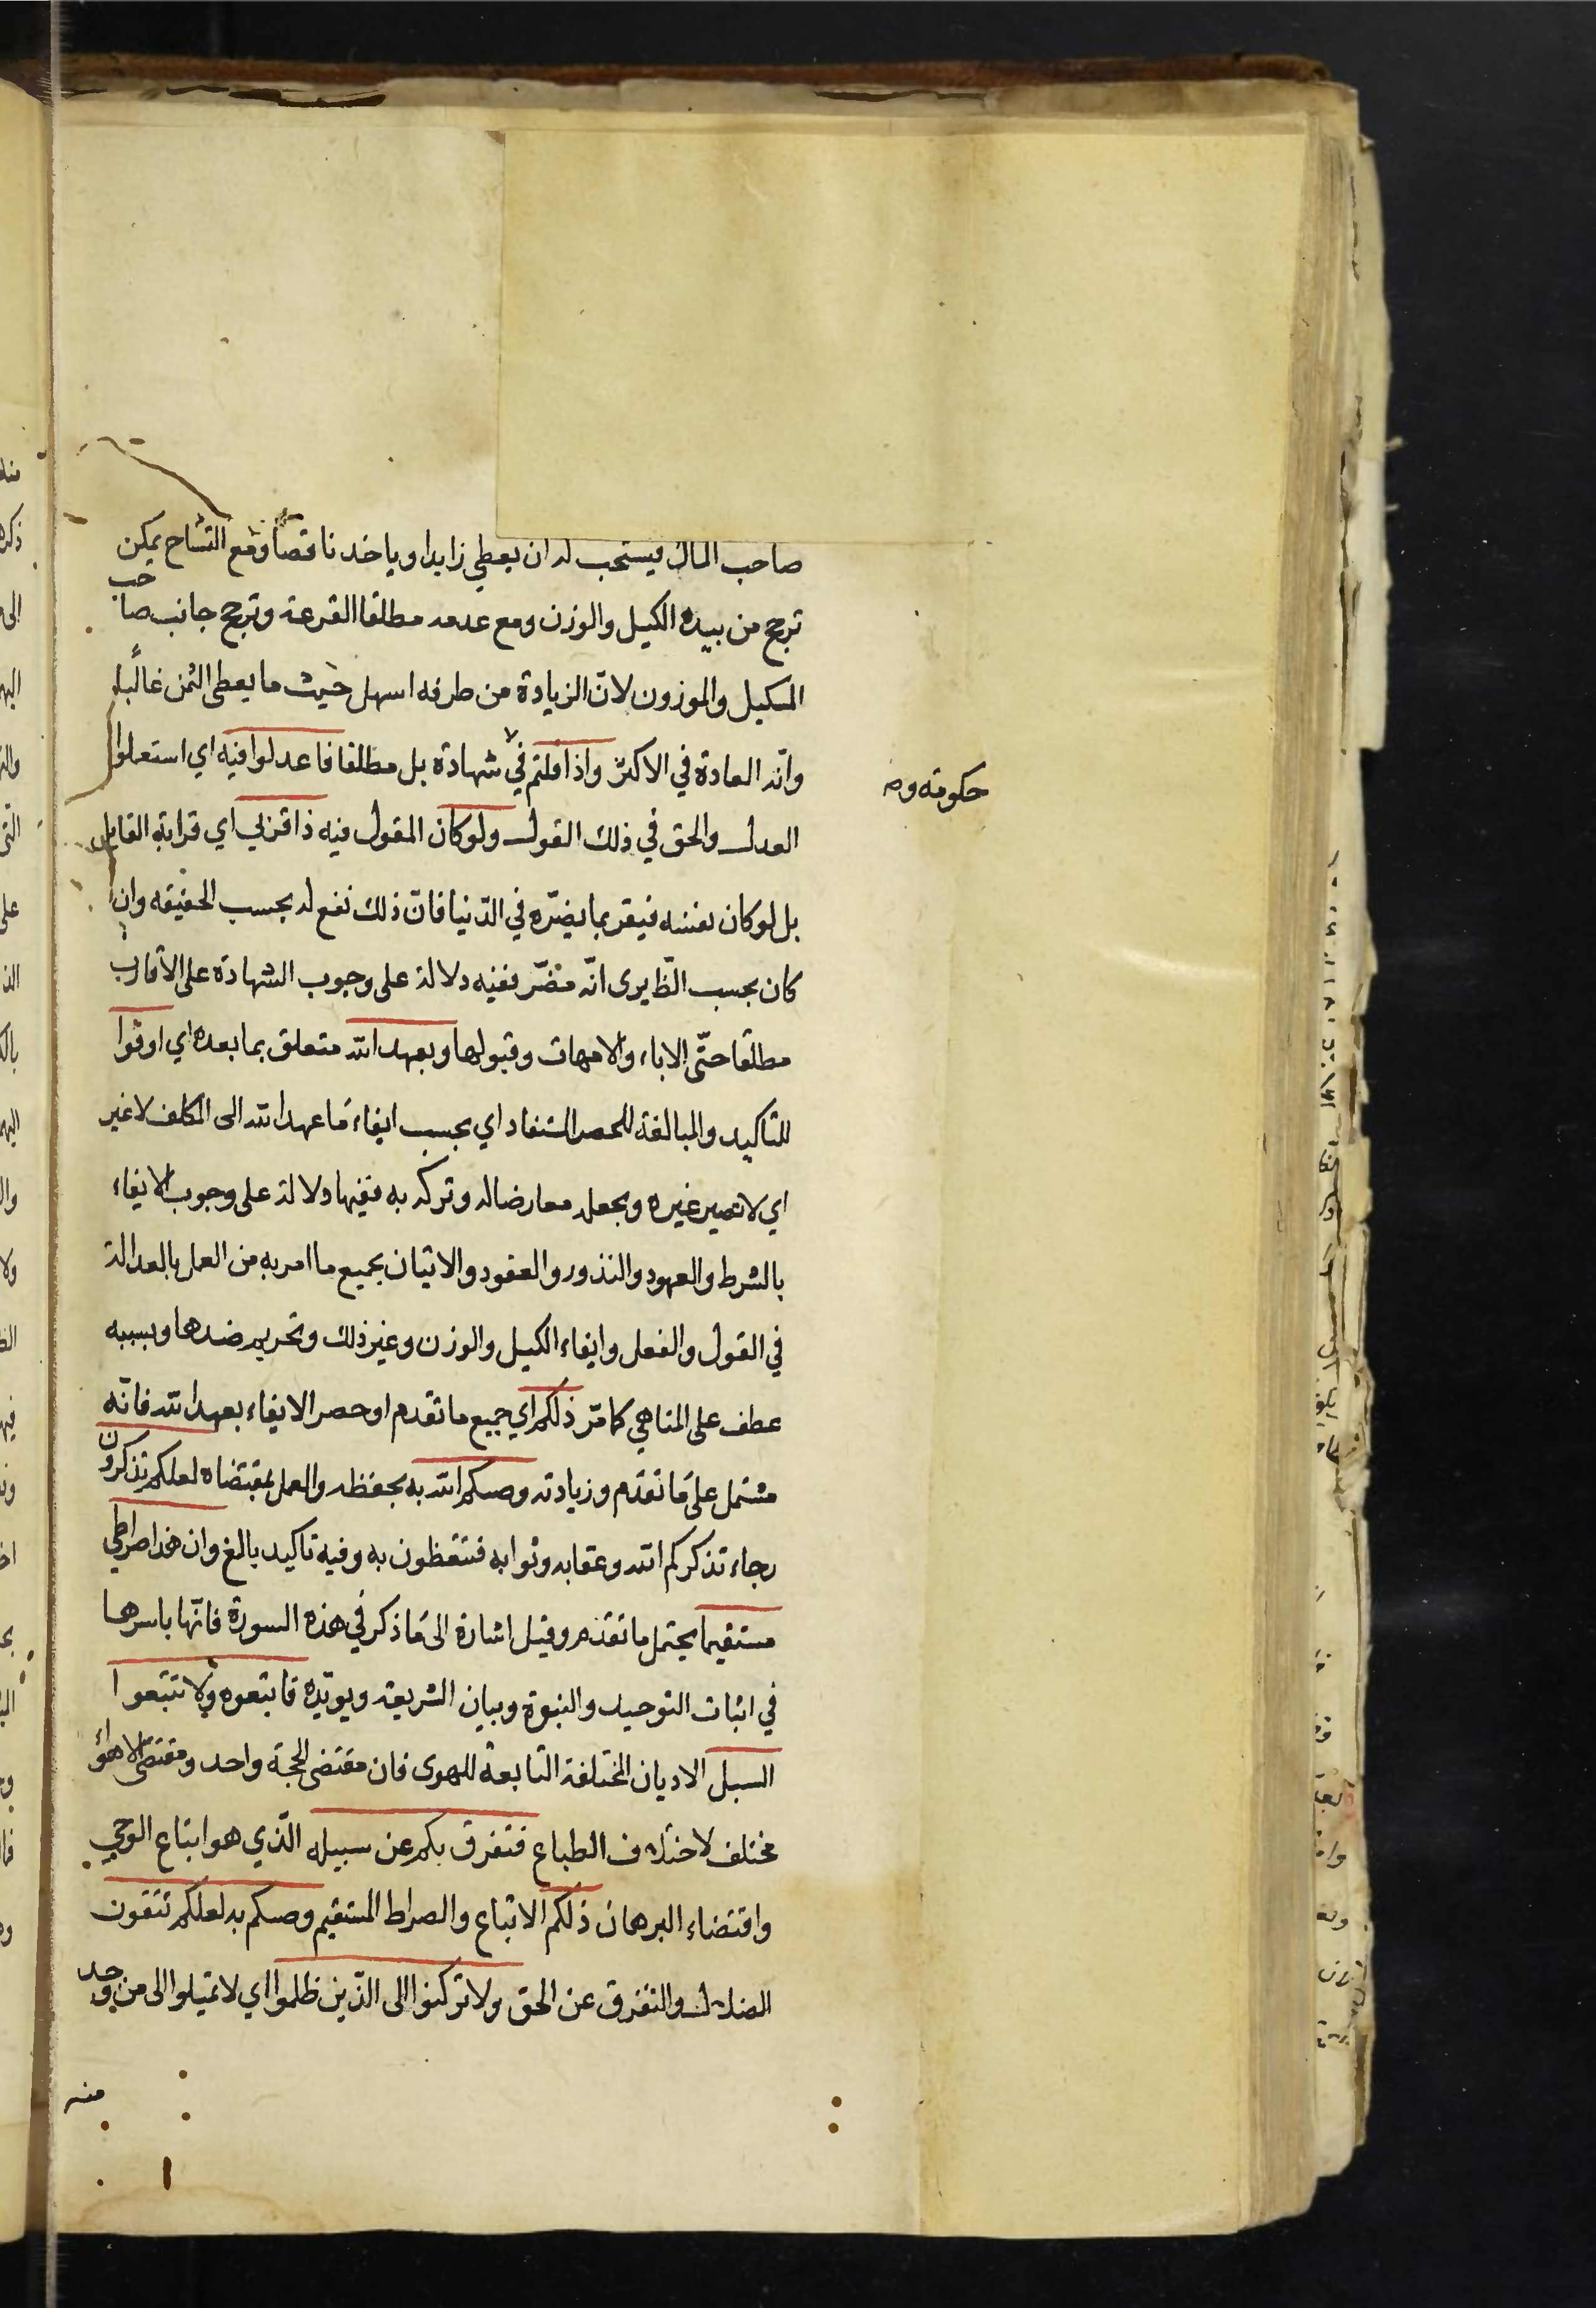 صاحب المال فيستحب له ان يعطي زايدا وياخذ ناقصا ومع التشاح يمكن
ترجح من بيده الكيل والوزن ومع عدمه مطلقا القرعة وترجح جانب صاحب
المكيل والموزون لانّ الزيادة من طرفه اسهل حيث ما يعطى الثمن غالبًا
وانه العادة في الاكثر واذا قلتم في شهادة بل مطلقا فاعدلوا فيه اي استعملوا
حكومة و
العدل والحق في ذلك القول ولو كان المقول فيه ذا قربى اي قرابة القايل
بل لو كان نفسه فيقر بما يضرّه في الدّنيا فانّ ذلك نفع له بحسب الحقيقه وان
كان بحسب الظّ يرى انّه مضّر ففيه دلالة على وجوب الشهادة على الاقارب
مطلقا حتّى الاباء والامهات وقبولها وبعهد الله متعلق بما بعده اي اوفوا
للتاكيد والمبالغة للحصر المستفاد اي بحسب ايفاء ما عهد الله الى المكلف لا غير
اي لا تصير غيره وبجعله معارضا له وتركه به ففيها دلالة على وجوب الايفاء
بالشرط والعهود والنذور والعقود والاتيان بجميع ما امر به من العمل بالعدالة
في القول والفعل وايفاء الكيل والوزن وغير ذلك وتحريم ضدها وبسببه
عطف على المناهي كما مّر ذلكم اي جميع ما تقدم او حصر الايفاء بعهد الله فانّه
مشتمل على ما تقدّم وزيادته وصيكم الله به بحفظه والعمل بمقتضاه لعلكم تذكرون
رجاء تذكركم الله وعقابه وثوابه فتتعظون به وفيه تاكيد بالغ وان هذا صراطي
مستقيما يحتمل ما تقدّم وقيل اشارة الى ما ذكر في هذه السورة فانّها باسرها
في اثبات التوحيد والنبوة وبيان الشريعة ويويّده فاتبعوه ولا تتبعوا
السبل الاديان المختلفة التابعة للهوى فان مقتضى الحجة واحد ومقتضى الاهواء
مختلف لاختلاف الطباع فتفرق بكم عن سبيله الّذي هو اتباع الوحي
واقتضاء البرهان ذلكم الاتباع والصراط المستقيم وصيكم به لعلكم تتقون
الضلال والتفرق عن الحق ولا تركنوا الى الّذين ظلموا اي لا تميلوا الى من وجد
منه